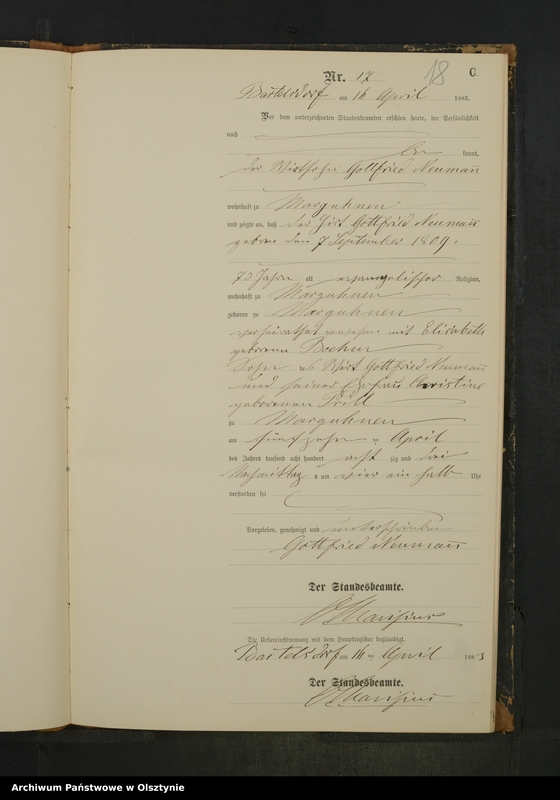 Nr. 17
18
C.
Bartelsdorf am 16 April 1883.
Vor dem unterzeichneten Standesbeamten erschien heute, der Persönlichkeit
nach
be kannt,
der Wirtsohn Gottfried Neumann
wohnhaft zu Marguhnen
und zeigte an, daß der Hirt Gottfried Neumann
geboren den 7 September 1809.
73 Jahre alt evangelischer Religion,
wohnhaft zu Margunen
geboren zu Margunen
verheirathet gewesen mit Elisabeth
geborene Boehm
Sohn des Wirt Gottfried Neumann
und seiner Ehefrau Christine
geborenen Prill
zu Margunen
am fünfzehn ten April
des Jahres tausend acht hundert acht zig und drei
Nachmittag s um vier ein halb Uhr
verstorben sei
Vorgelesen, genehmigt und unterschrieben
Gottfried Neumann
Der Standesbeamte.
Die Uebereinstimmung mit dem Hauptregister beglaubigt.
Bartelsdorf am 16 ten April 1883
Der Standesbeamte.
Archiwum Państwowe w Olsztynie